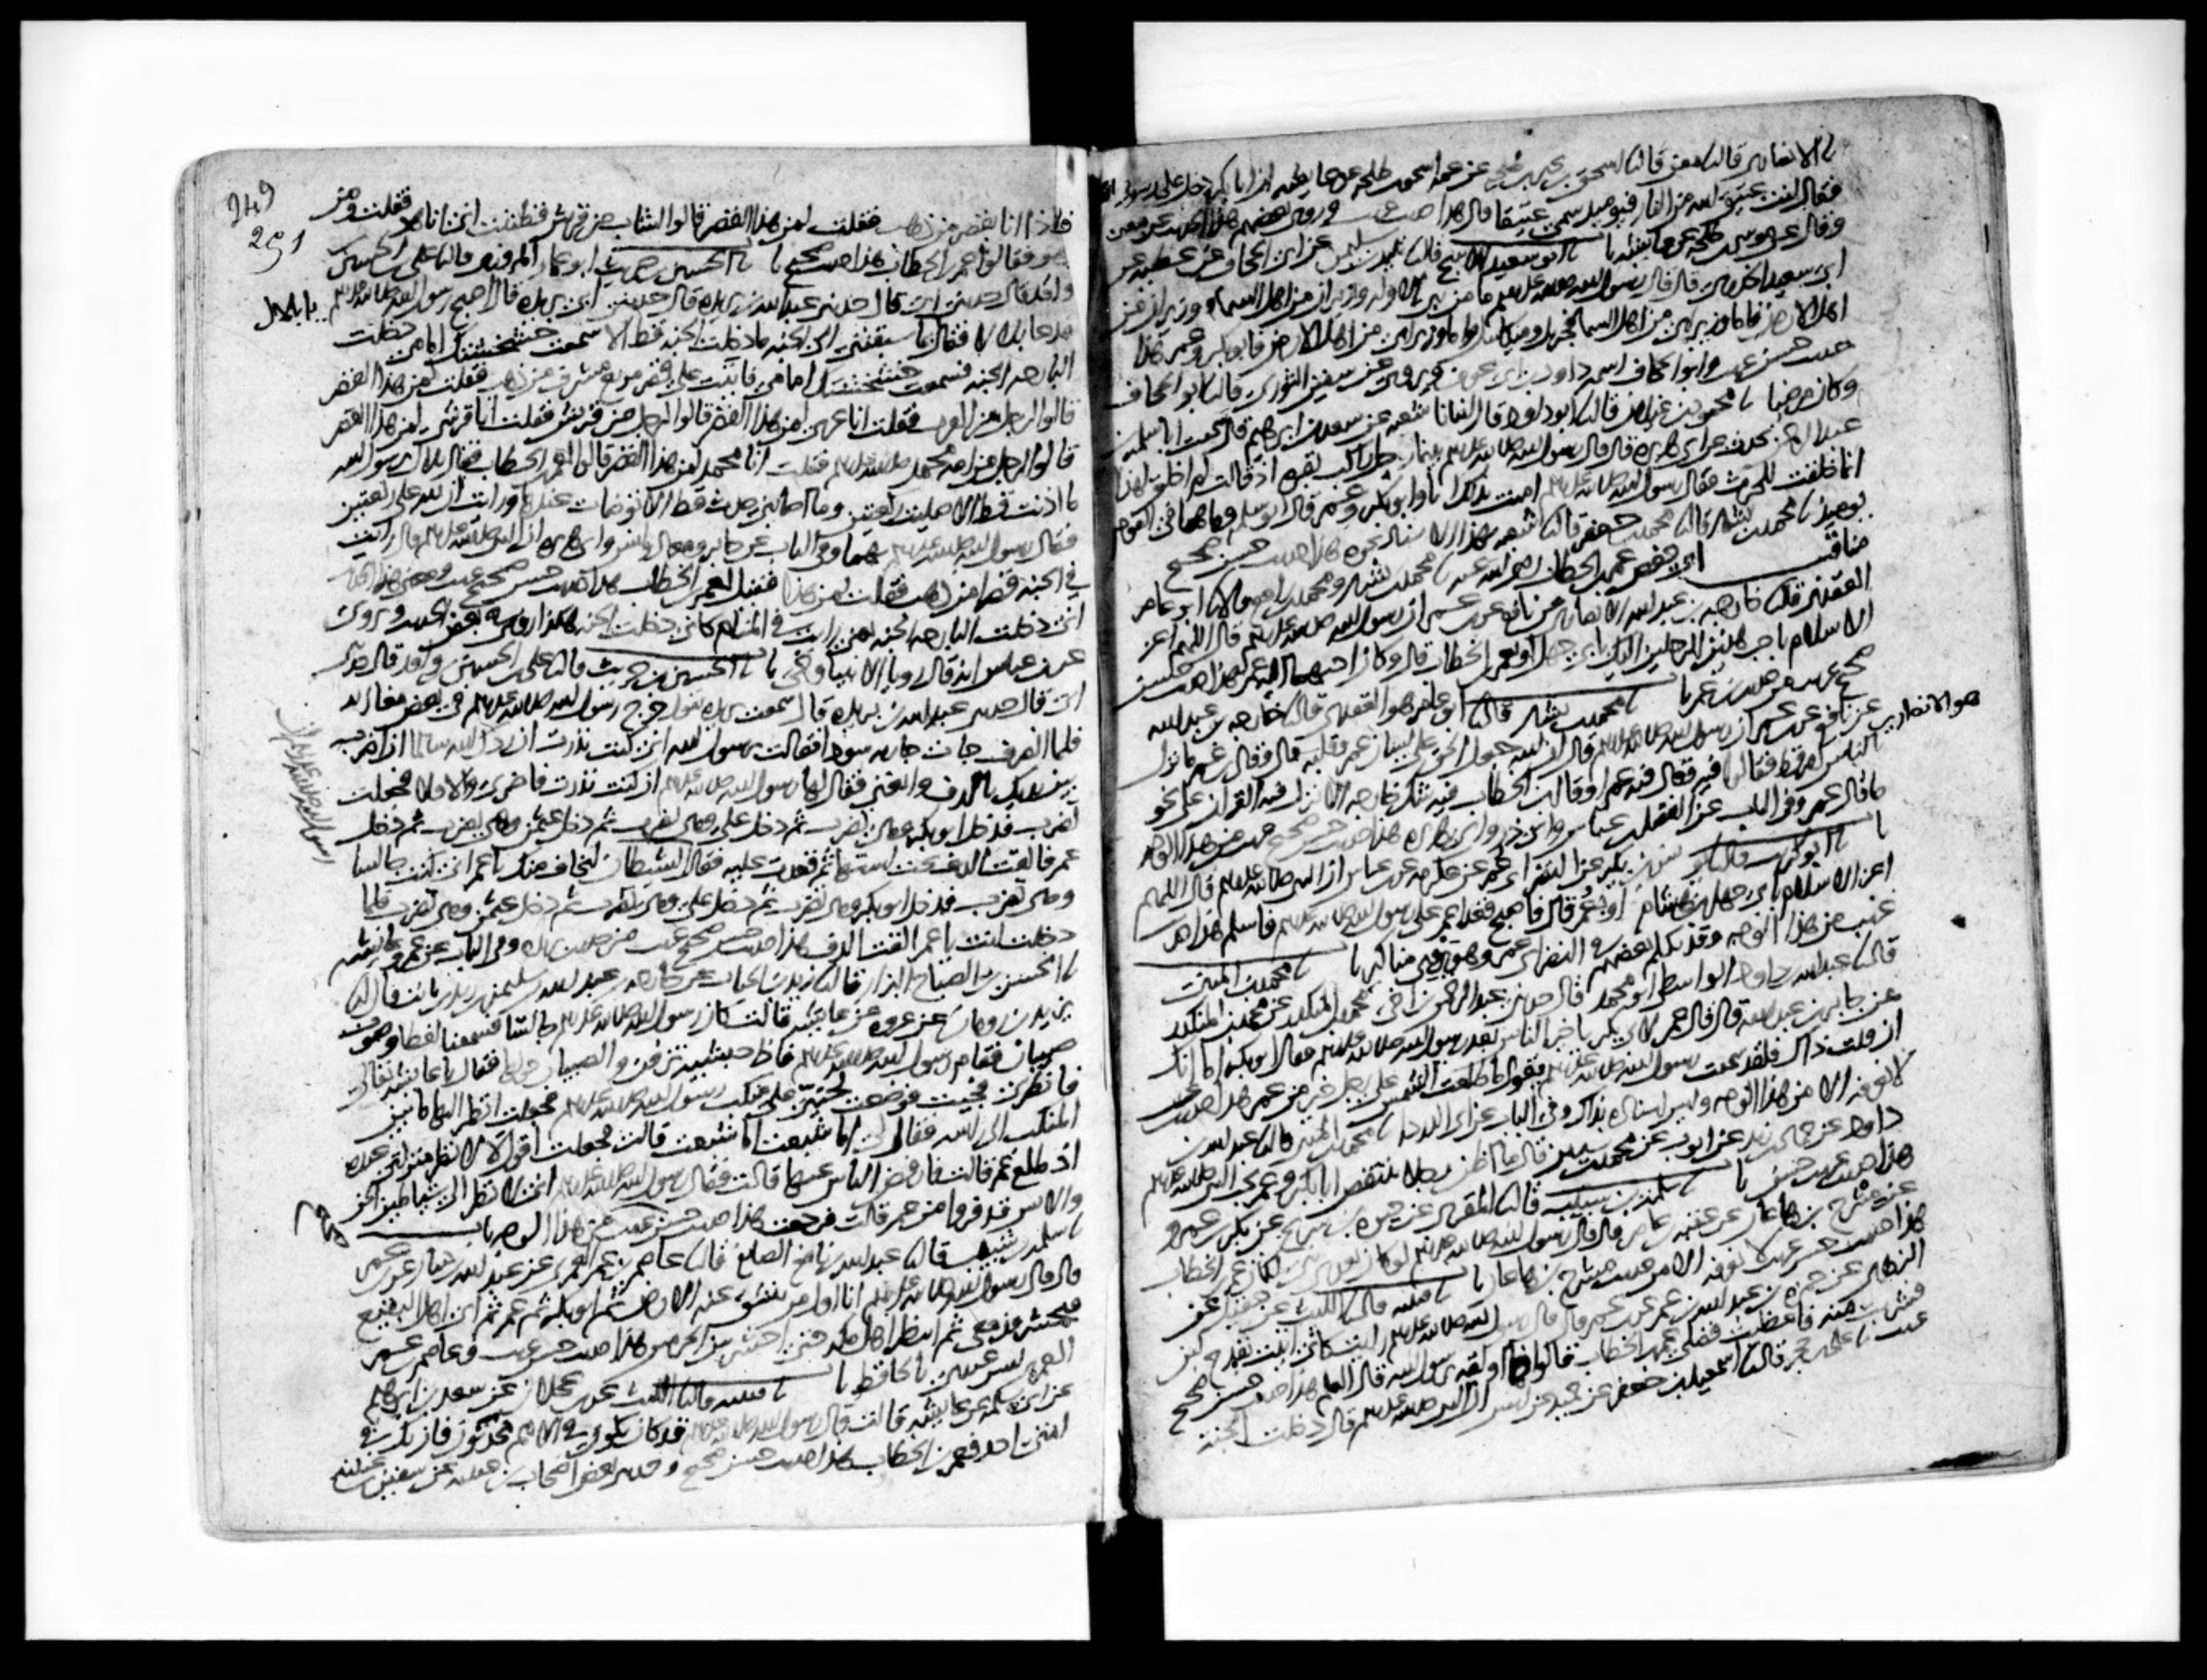 نا الانصاري قال نا معن قال نا اسحق بن يحيى بن طلحة عن عمه اسحق بن طلحة عن عايشة ان ابا بكر دخل على رسول الله
فقال انت عتيق الله من النار فيوميذ سمي عتيقا قال هذا حديث غريب وروى بعضهم هذا الحديث عن معن
وقال عن موسى بن طلحة عن عايشة نا ابو سعيد الاشج قال نا تليد بن سليمن عن ابي الجحاف عن عطية عن
ابي سعيد الخدري قال قال رسول الله صلى الله عليه وسلم ما من نبي الا وله وزيران من اهل السماء ووزيران من
اهل الارض فاما وزيراي من اهل السماء فجبريل وميكايل واما وزيراي من اهل الارض فابو بكر وعمر هذا
حديث حسن غريب وابو الجحاف اسمه داود بن ابي عوف ويروى عن سفين الثوري قال نا ابو الجحاف
وكان مرضيا نا محمود بن غيلان قال نا ابو داود قال انبانا شعبة عن سعد بن ابرهيم قال سمعت ابا سلمة بن
عبد الرحمن يحدث عن ابي هريرة قال قال رسول الله صلى الله عليه وسلم بينما رجل راكب بقرة اذ قالت لم اخلق لهذا
انما خلقت للحرث فقال رسول الله صلى الله عليه وسلم امنت بذلك انا وابو بكر وعمر قال ابو سلمة وما هما في القوم
يوميذ نا محمد بن بشار قال نا محمد بن جعفر قال نا شعبة بهذا الاسناد نحوه هذا حديث حسن صحيح
مناقب ابي حفص عمر بن الخطاب رضي الله عنه نا محمد بن بشار ومحمد بن رافع قالا نا ابو عامر
العقدي قال نا خارجة بن عبد الله الانصاري عن نافع عن ابن عمر ان رسول الله صلى الله عليه وسلم قال اللهم اعز
الاسلام باحب هذين الرجلين اليك بابي جهل او بعمر بن الخطاب قال وكان احبهما اليه عمر هذا حديث حسن
صحيح غريب من حديث ابن عمر نا محمد بن بشار قال نا ابو عامر هو العقدي قال نا خارجة بن عبد الله
هو الانصاري
عن نافع عن ابن عمر ان رسول الله صلى الله عليه وسلم قال ان الله جعل الحق على لسان عمر وقلبه قال وقال ابن عمر ما نزل
بالناس امر قط فقالوا فيه وقال فيه عمر او قال ابن الخطاب فيه شك خارجة الا نزل فيه القران على نحو
ما قال عمر وفي الباب عن الفضل بن عباس وابي ذر وابي هريرة هذا حديث حسن صحيح غريب من هذا الوجه
نا ابو كريب قال نا يونس بن بكير عن النضر ابي عمر عن عكرمة عن ابن عباس ان النبي صلى الله عليه وسلم قال اللهم
اعز الاسلام بابي جهل بن هشام او بعمر قال فاصبح فغدا عمر على رسول الله صلى الله عليه وسلم فاسلم هذا حديث
غريب من هذا الوجه وقد تكلم بعضهم في النضر ابي عمر وهو يروي مناكير نا محمد بن المثنى
قال نا عبد الله بن داود الواسطي ابو محمد قال حدثني عبد الرحمن بن اخي محمد بن المنكدر عن محمد بن المنكدر
عن جابر بن عبد الله قال قال عمر لابي بكر يا خير الناس بعد رسول الله صلى الله عليه وسلم فقال ابو بكر اما انك
ان قلت ذاك فلقد سمعت رسول الله صلى الله عليه وسلم يقول ما طلعت الشمس على رجل خير من عمر هذا حديث غريب
لا نعرفه الا من هذا الوجه وليس اسناده بذاك وفي الباب عن ابي الدرداء نا محمد بن المثنى قال نا عبد الله بن
داود عن حماد بن زيد عن ايوب عن محمد بن سيرين قال ما اظن رجلا ينتقص ابا بكر وعمر يحب النبي صلى الله عليه وسلم
هذا حديث غريب حسن نا سلمة بن شبيب قال نا المقري عن حيوة بن شريح عن بكر بن عمرو
عن مشرح بن هاعان عن عقبة بن عامر قال قال رسول الله صلى الله عليه وسلم لو كان بعدي نبي لكان عمر بن الخطاب
هذا حديث حسن غريب لا نعرفه الا من حديث مشرح بن هاعان نا قتيبة قال نا الليث عن عقيل عن
الزهري عن حمزة بن عبد الله بن عمر عن ابن عمر قال قال رسول الله صلى الله عليه وسلم رايت كاني اتيت بقدح لبن
فشربت منه فاعطيت فضلي عمر بن الخطاب قالوا فما اولته يا رسول الله قال العلم هذا حديث حسن صحيح
غريب نا علي بن حجر قال نا اسمعيل بن جعفر عن حميد عن انس ان النبي صلى الله عليه وسلم قال دخلت الجنة
249
251
فاذا انا بقصر من ذهب فقلت لمن هذا القصر قالوا لشاب من قريش فظننت اني انا هو فقلت ومن
هو فقالوا عمر بن الخطاب هذا حديث صحيح نا الحسين بن حريث ابو عمار المروزي قال نا علي بن الحسين بن
واقد قال حدثني ابي قال حدثني عبد الله بن بريدة قال حدثني ابي بريدة قال اصبح رسول الله صلى الله عليه وسلم
فدعا بلالا فقال يا بلال بما سبقتني الى الجنة ما دخلت الجنة قط الا سمعت خشخشتك امامي دخلت
البارحة الجنة فسمعت خشخشتك امامي فاتيت على قصر مربع مشرف من ذهب فقلت لمن هذا القصر
قالوا لرجل من العرب فقلت انا عربي لمن هذا القصر قالوا لرجل من قريش فقلت انا قرشي لمن هذا القصر
قالوا لرجل من امة محمد صلى الله عليه وسلم فقلت انا محمد لمن هذا القصر قالوا لعمر بن الخطاب فقال بلال يا رسول الله
ما اذنت قط الا صليت ركعتين وما اصابني حدث قط الا توضات عندها ورايت ان لله علي ركعتين
فقال رسول الله صلى الله عليه وسلم بهما وفي الباب عن جابر ومعاذ وانس وابي هريرة ان النبي صلى الله عليه وسلم قال رايت
في الجنة قصرا من ذهب فقلت لمن هذا فقيل لعمر بن الخطاب هذا حديث حسن صحيح غريب ومعنى هذا الحديث
اني دخلت البارحة الجنة يعني رايت في المنام كاني دخلت الجنة هكذا روي في بعض الحديث ويروى
عن ابن عباس انه قال رويا الانبيا وحي نا الحسين بن حريث قال نا علي بن الحسين بن واقد قال حدثني
ابي قال حدثني عبد الله بن بريدة قال سمعت بريدة يقول خرج رسول الله صلى الله عليه وسلم في بعض مغازيه
فلما انصرف جات جارية سودا فقالت يا رسول الله اني كنت نذرت ان ردك الله سالما ان اضرب
بين يديك بالدف واتغنى فقال لها رسول الله صلى الله عليه وسلم ان كنت نذرت فاضربي والا فلا فجعلت
تضرب فدخل ابو بكر وهي تضرب ثم دخل علي وهي تضرب ثم دخل عثمن وهي تضرب ثم دخل
عمر فالقت الدف تحت استها ثم قعدت عليه فقال رسول الله صلى الله عليه وسلم ان الشيطان ليخاف منك يا عمر اني كنت جالسا
وهي تضرب فدخل ابو بكر وهي تضرب ثم دخل علي وهي تضرب ثم دخل عثمن وهي تضرب فلما
دخلت انت يا عمر القت الدف هذا حديث حسن صحيح غريب من حديث بريدة وفي الباب عن عمر وعايشة
نا الحسن بن الصباح البزار قال نا زيد بن الحباب عن خارجة بن عبد الله بن سليمن بن زيد بن ثابت قال نا
يزيد بن رومان عن عروة عن عايشة قالت كان رسول الله صلى الله عليه وسلم جالسا فسمعنا لغطا وصوت
صبيان فقام رسول الله صلى الله عليه وسلم فاذا حبشية تزفن والصبيان حولها فقال يا عايشة تعالي
فانظري فجيت فوضعت لحيي على منكب رسول الله صلى الله عليه وسلم فجعلت انظر اليها ما بين
المنكب الى راسه فقال لي اما شبعت اما شبعت قالت فجعلت اقول لا لانظر منزلتي عنده
اذ طلع عمر قالت فارفض الناس عنها قالت فقال رسول الله صلى الله عليه وسلم اني لانظر الى شياطين الجن
والانس قد فروا من عمر قالت فرجعت هذا حديث حسن غريب من هذا الوجه باب
نا سلمة بن شبيب قال نا عبد الله بن نافع الصايغ قال نا عاصم بن عمر العمري عن عبد الله بن دينار عن ابن عمر
قال قال رسول الله صلى الله عليه وسلم انا اول من تنشق عنه الارض ثم ابو بكر ثم عمر ثم اتي اهل البقيع
فيحشرون معي ثم انتظر اهل مكة حتى احشر بين الحرمين هذا حديث حسن غريب وعاصم بن عمر
العمري ليس عندي بالحافظ نا قتيبة قال نا الليث عن ابن عجلان عن سعد بن ابرهيم
عن ابي سلمة عن عايشة قالت قال رسول الله صلى الله عليه وسلم قد كان يكون في الامم محدثون فان يك في
امتي احد فعمر بن الخطاب هذا حديث حسن صحيح وحدثني بعض اصحاب ابن عيينة عن سفين بن عيينة